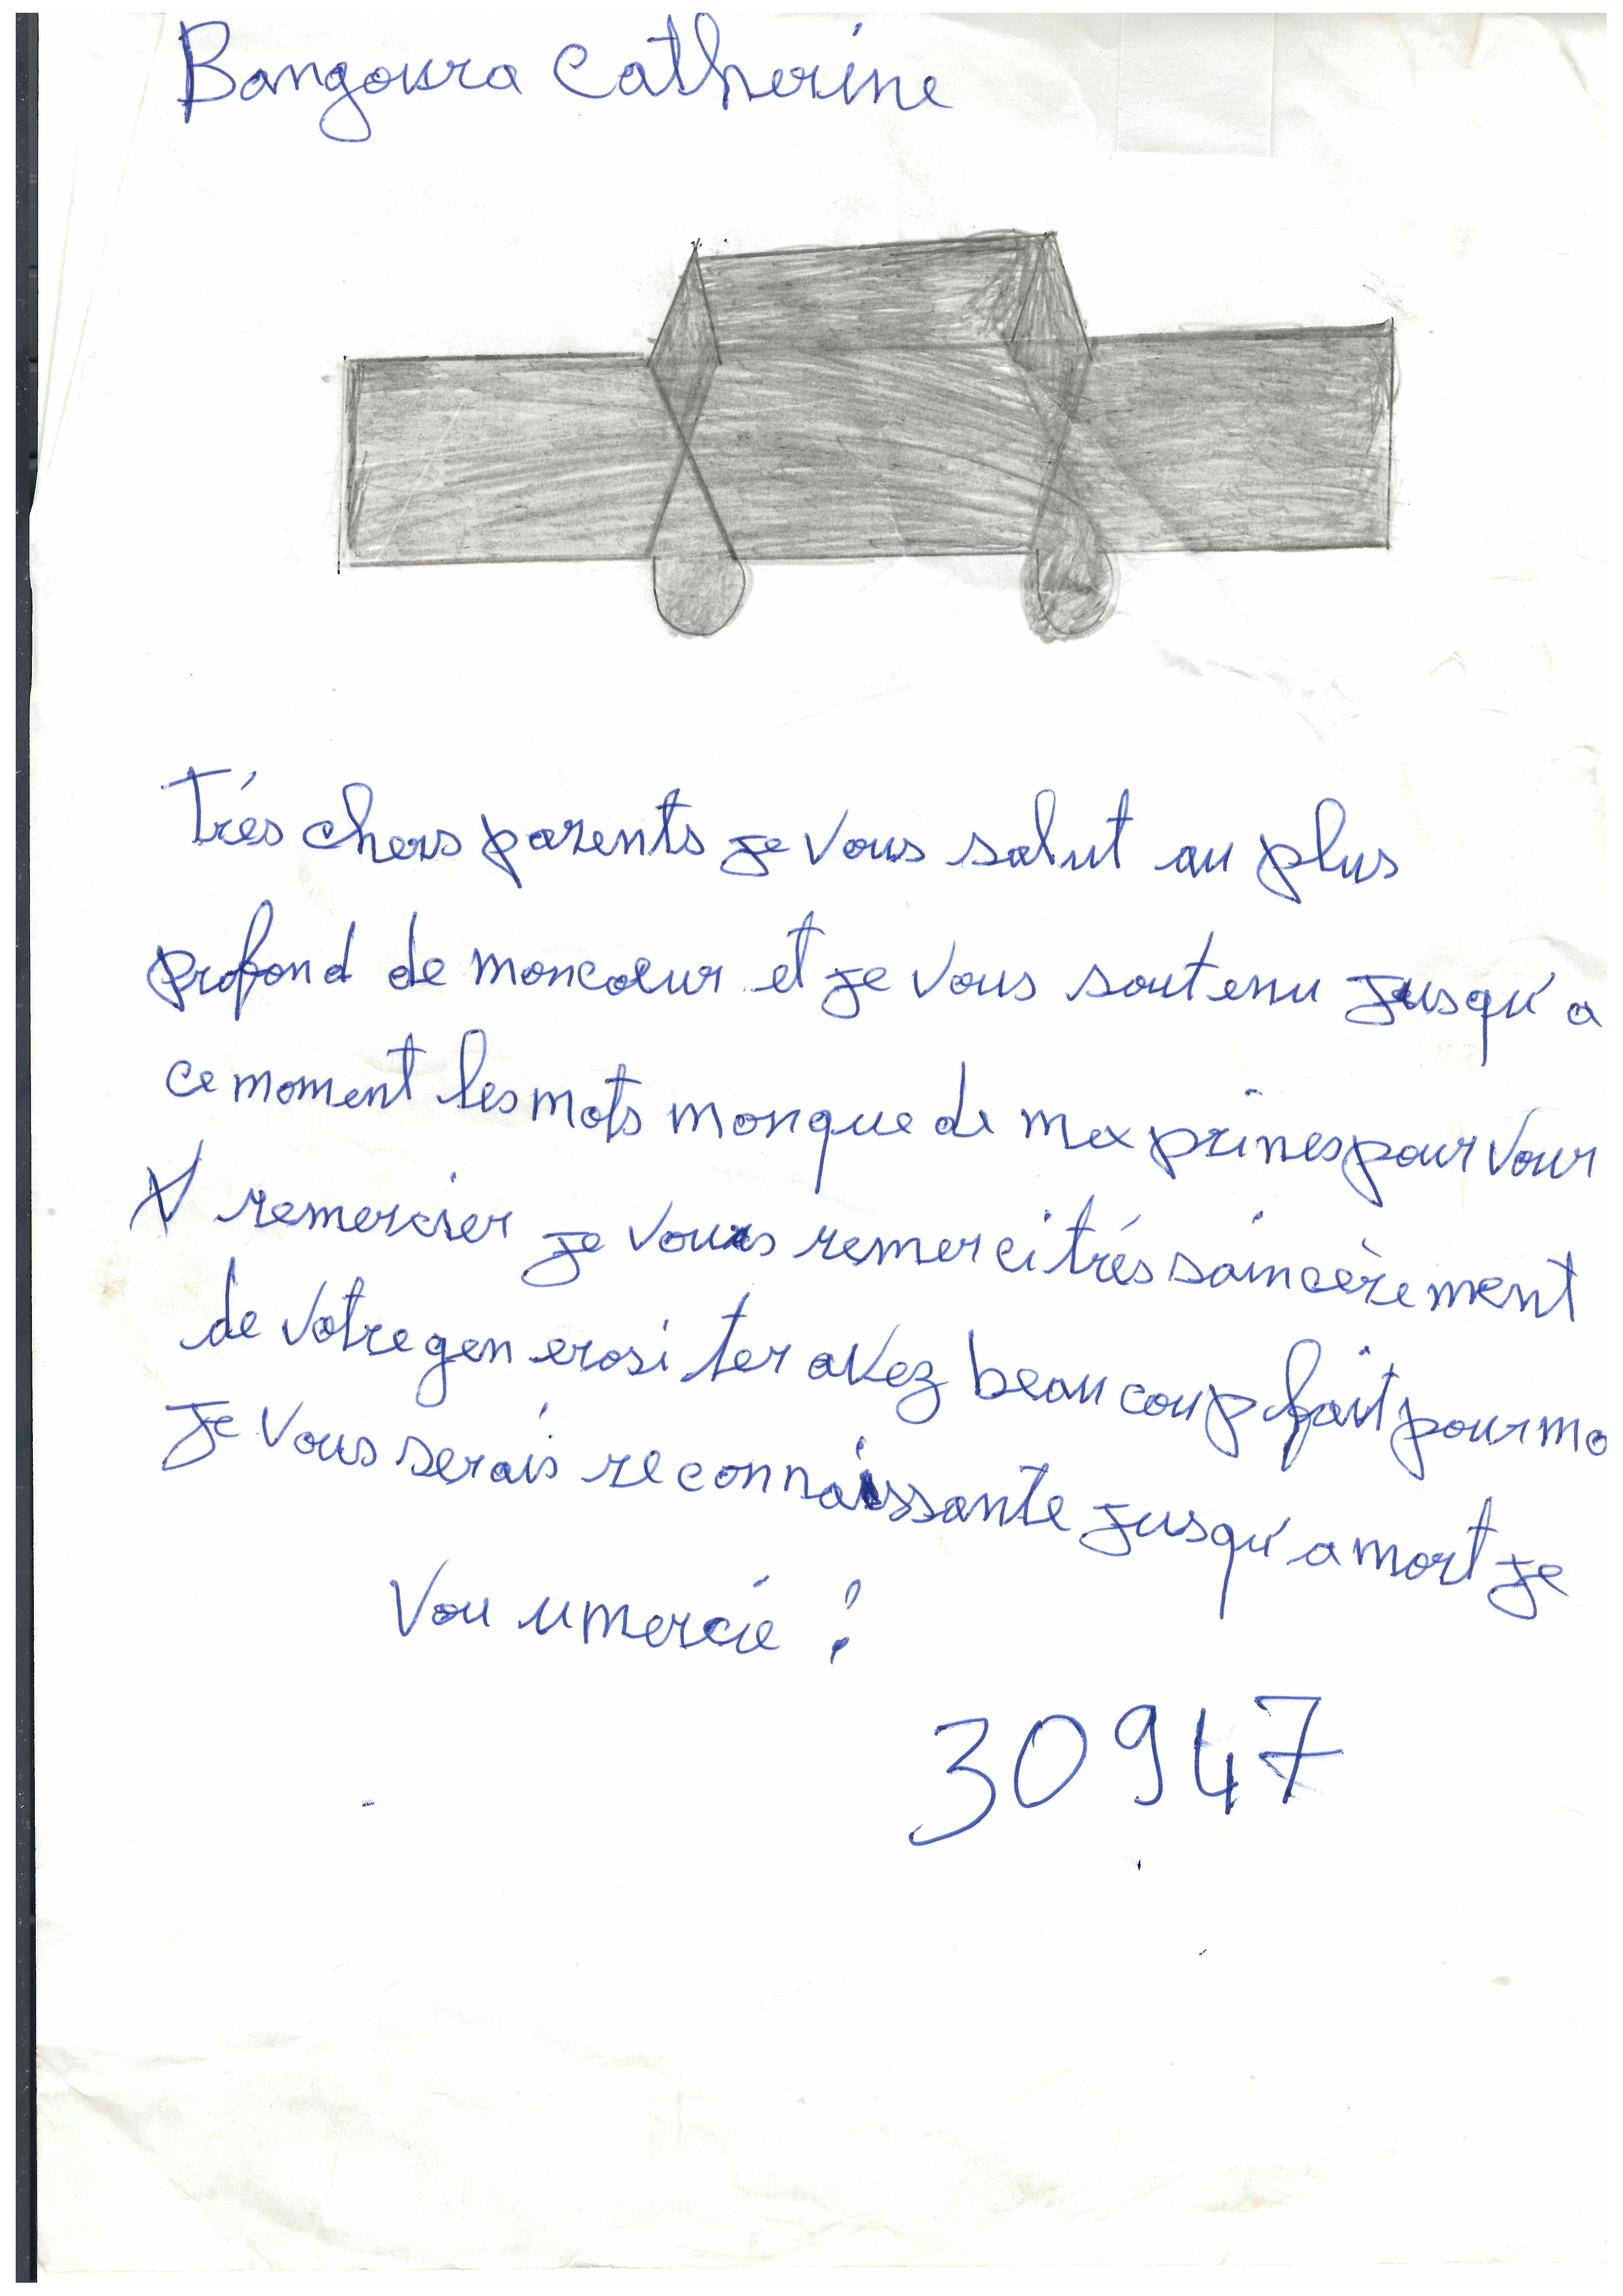 Bangoura Catherine
Trés chers parents je vous salut au plus
profond de moncoeur et je vous soutenu jusqu'a
ce moment les mots monque de ma prines pour vour
remercier je vous remerci trés saincèrement
de votre gen erosi ter avez beaucoup fait pour mo
je vous serais reconnaissante jusqu'a mort je
Vou umercie !
30947